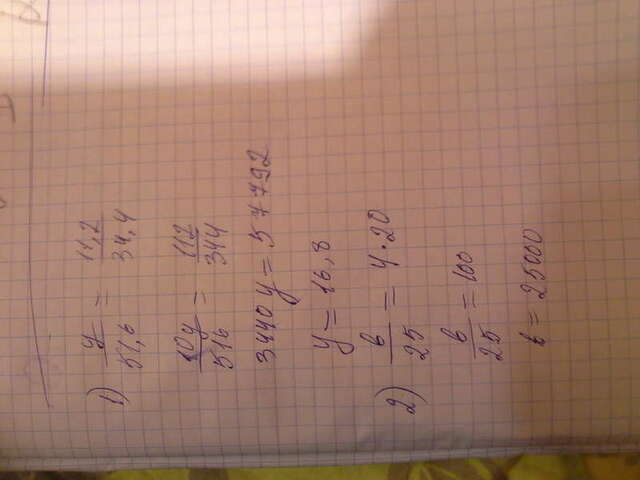 1) y/51,6 = 11,2/34,4
10y/516 = 112/344
3440y = 57792
y = 16,8
2) b/25 = 4·20
b/25 = 100
b = 25000